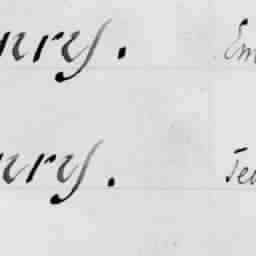 nry. Em
nry. Tea